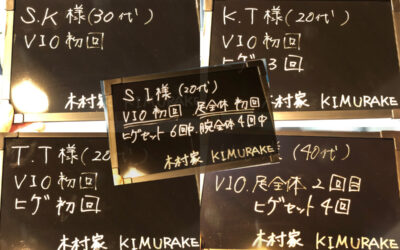 S.K様(30代)
VIO初回
木村家 KIMURAKE
K.T様(20代)
VIO初回
3回
木村家 KIMURAKE
S.I様(20代)
VIO初回 尻全体 初回
ヒゲセット6回中.腕全体4回中
木村家 KIMURAKE
T.T様(20
VIO初回
ヒゲ初回
木村家 KIMURAKE
(40代)
VIO.尻全体2回目
ヒゲセット4回
木村家 KIMURAKE